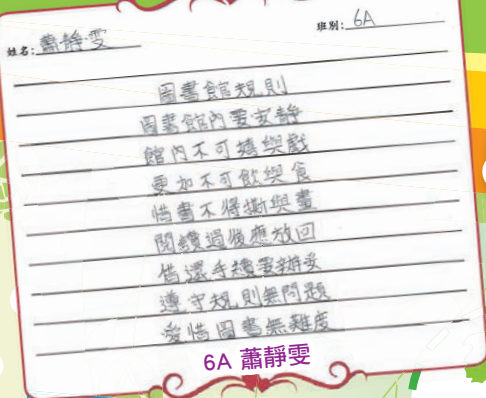 姓名:蕭靜雯
班別:6A
圖書館規則
圖書館內要安靜
館內不可嬉與戲
更加不可飲與食
惜書不得撕與畫
閱讀過後應放回
借還手續要辦妥
遵守規則無問題
愛惜圖書無難度
6A 蕭靜雯